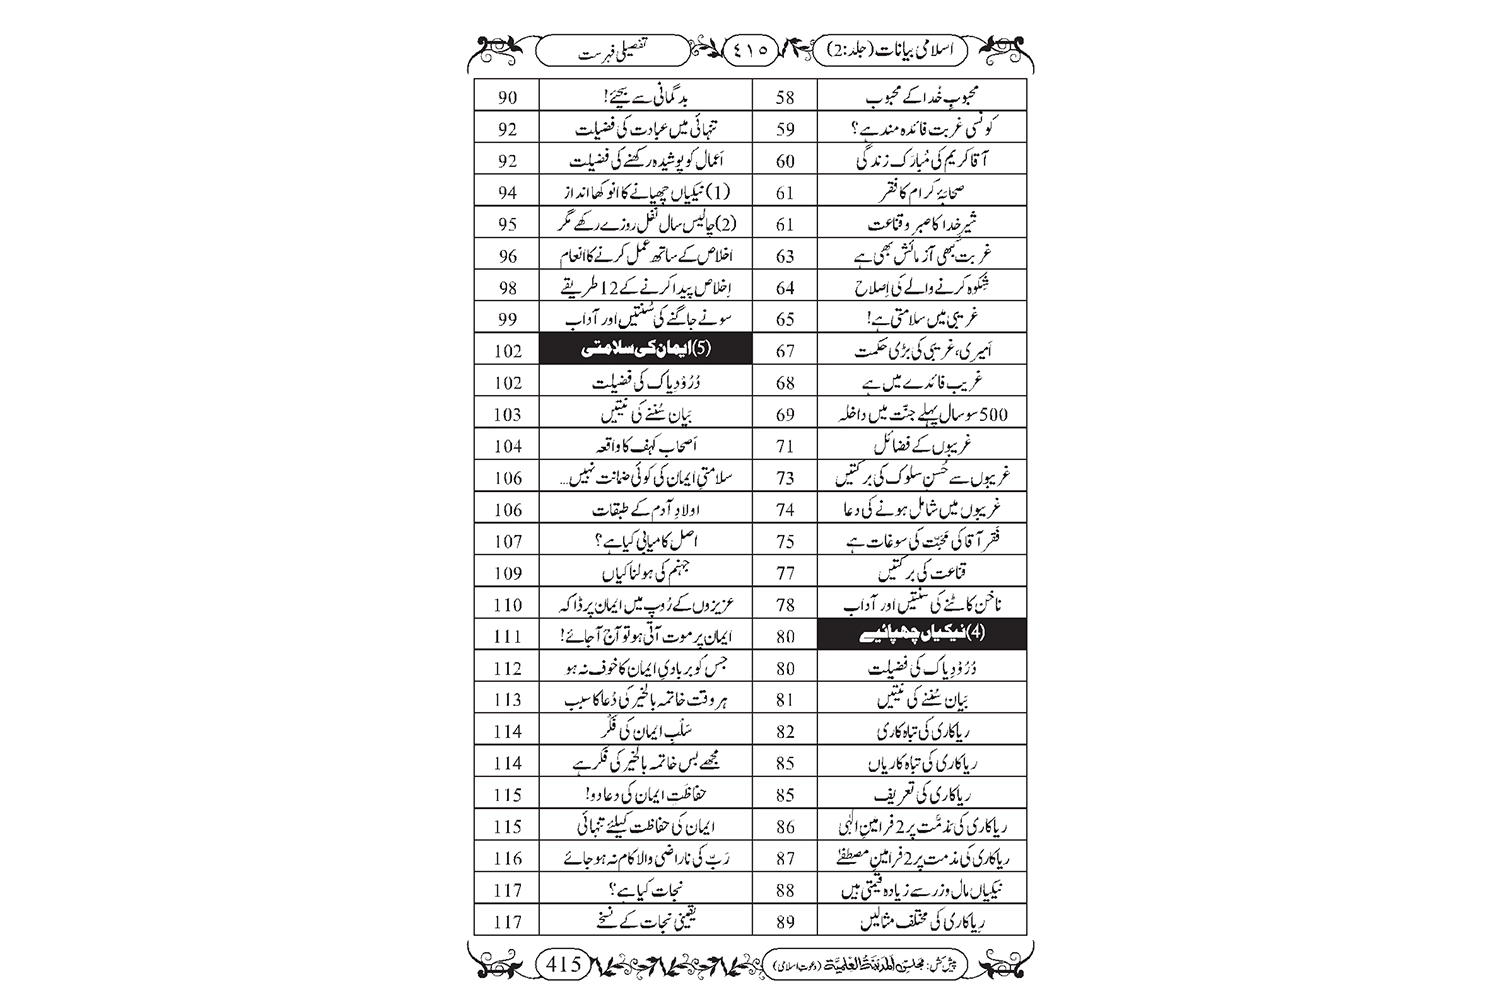 اسلامی بیانات (جلد:2)
٤١٥
تفصیلی فہرست
محبوبِ خُدا کے محبوب 58
کونسی غربت فائدہ مند ہے؟ 59
آقا کریم کی مُبارَک زندگی 60
صحابۂ کرام کا فقر 61
شیرِ خدا کا صبر و قناعت 61
غربت بھی آزمائش بھی ہے 63
شِکوہ کرنے والے کی اِصلاح 64
غریبی میں سلامتی ہے! 65
اَمیری، غریبی کی بڑی حکمت 67
غریب فائدے میں ہے 68
500 سو سال پہلے جنّت میں داخلہ 69
غریبوں کے فضائل 71
غریبوں سے حُسنِ سلوک کی برکتیں 73
غریبوں میں شامل ہونے کی دعا 74
فَقر آقا کی مَحَبّت کی سوغات ہے 75
قناعت کی برکتیں 77
ناخن کاٹنے کی سنتیں اور آداب 78
(4) نیکیاں چھپائیے 80
دُرُودِ پاک کی فضیلت 80
بَیان سُننے کی نیّتیں 81
ریاکاری کی تباہ کاری 82
ریاکاری کی تباہ کاریاں 85
ریاکاری کی تعریف 85
ریاکاری کی مَذمَّت پر 2 فرامینِ الٰہی 86
ریاکاری کی مذمت پر 2 فرامینِ مصطفےٰ 87
نیکیاں مال و زر سے زیادہ قیمتی ہیں 88
رِیاکاری کی مختلف مثالیں 89
بدگمانی سے بچئے! 90
تنہائی میں عبادت کی فضیلت 92
اَعمال کو پوشیدہ رکھنے کی فضیلت 92
(1) نیکیاں چھپانے کا انوکھا انداز 94
(2) چالیس سال نفل روزے رکھے مگر 95
اخلاص کے ساتھ عمل کرنے کا اَنعام 96
اِخلاص پیدا کرنے کے 12 طریقے 98
سونے جاگنے کی سُنتیں اور آداب 99
(5) ایمان کی سلامتی 102
دُرُودِ پاک کی فضیلت 102
بَیان سُننے کی نیتیں 103
اَصحابِ کہف کا واقعہ 104
سلامتیِ ایمان کی کوئی ضمانت نہیں... 106
اولادِ آدم کے طبقات 106
اصل کامیابی کیا ہے؟ 107
جہنم کی ہولناکیاں 109
عزیزوں کے رُوپ میں ایمان پر ڈاکہ 110
ایمان پر موت آتی ہو تو آج آجائے! 111
جس کو بربادیِ ایمان کا خوف نہ ہو 112
ہر وقت خاتمہ بالخیر کی دُعا کا سبب 113
سَلْبِ ایمان کی فکر 114
مجھے بس خاتمہ بالخیر کی فکر ہے 114
حفاظتِ ایمان کی دعا دو! 115
ایمان کی حفاظت کیلئے تنہائی 115
رَبّ کی ناراضی والا کام نہ ہو جائے 116
نجات کیا ہے؟ 117
یقینی نجات کے نسخے 117
پیش کش: مجلس اَلْمَدِیْنَۃُ الْعِلْمِیَّۃ (دعوتِ اسلامی)
415